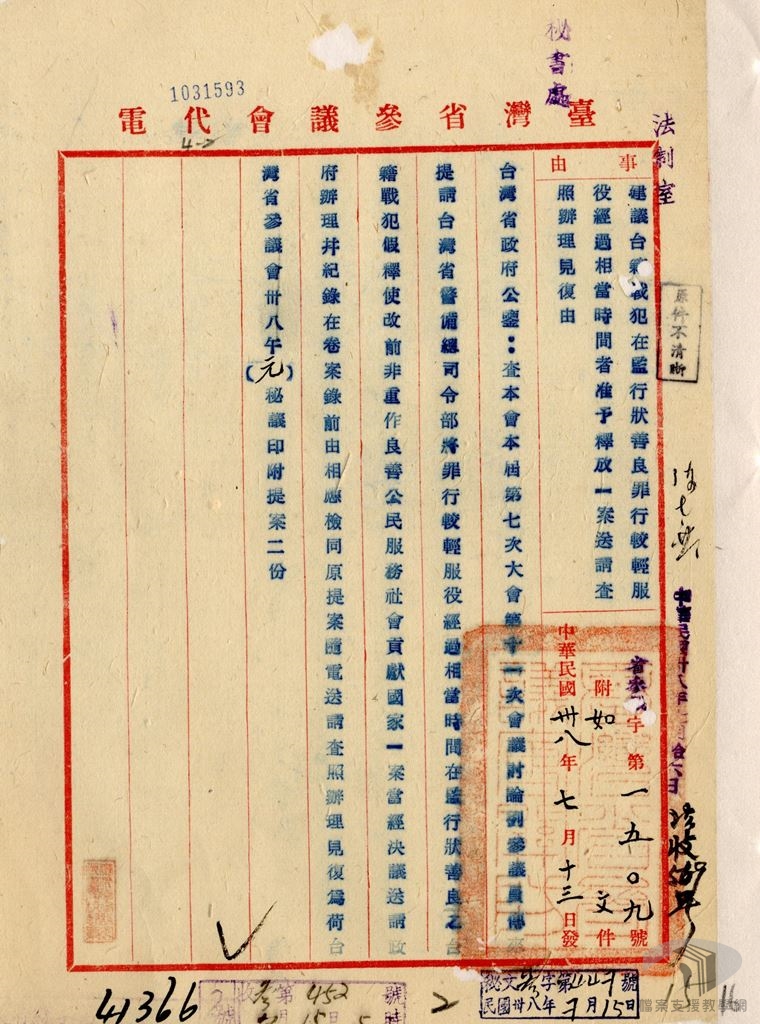 1031593
秘書處
臺灣省參議會代電
法制室
原件不清晰
事由
建議台籍戰犯在監行狀善良罪行較輕服
役經過相當時間者准予釋放一案送請查
照辦理見復由
字第一五〇九號
附如文件
中華民國卅八年七月十三日發
台灣省政府公鑒：查本會本屆第七次大會第十一次會議討論劉參議員傳來
提請台灣省警備總司令部將罪行較輕服役經過相當時間在監行狀善良之台
籍戰犯假釋使改前非重作良善公民服務社會貢獻國家一案當經決議送請政
府辦理并紀錄在卷案錄前由相應檢同原提案隨電送請查照辦理見復為荷台
灣省參議會卅八午（元）秘議印附提案二份
41366
第452號
2
秘文參字第號
民國卅八年7月15日
檔案支援教學網